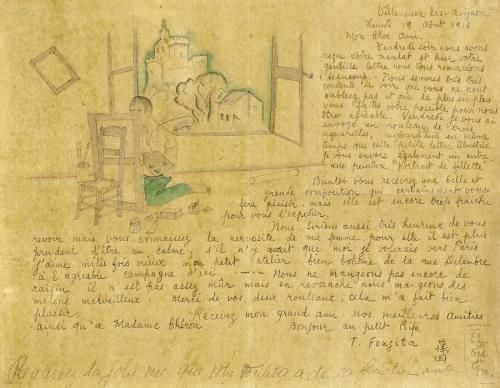 Villeneuve les-Avignon
Lundi 19 Août 1918
Mon Cher Ami.
Vendredi soir nous avons
reçu votre mandat et hier votre
gentille lettre nous vous remercions
beaucoup. - Nous sommes très très
contents de voir que vous ne nous
oubliez pas et que de plus en plus
vous faites votre possible pour nous
êtres agréable. Vendredi je vous ai
envoyé un rouleau de trois
aquarelles, aujourd'hui en même
temps que cette petite lettre illustrée
je vous envoie également un autre
une peinture "portrait de fillette"
Bientôt vous recevrez une belle et
grande composition qui certainement vous
fera plaisir, mais elle est encore trop fraiche
pour vous l'expedier.
Nous serions aussi très heureux de vous
revoir mais vous connaissez la nervosité de ma femme, pour elle il est plus
prudent d'être au calme, s'il n'y avait que moi je serais vers Paris
j'aime mille fois mieux mon petit atelier bien bohème de la rue Delambre
à l'agréable campagne d'ici. - Nous ne mangeons pas encore de
raisin il n'est pas assez mûr mais en revanche nous mangeons des
melons merveilleux. Merci de vos deux rouleaux, cela m'a fait bien
plaisir. Recevez mon grand ami nos meilleures Amitiés
ainsi qu'à Madame Chéron. Bonjour au petit Rip.
T. Foujita
que votre Foujita a de sa